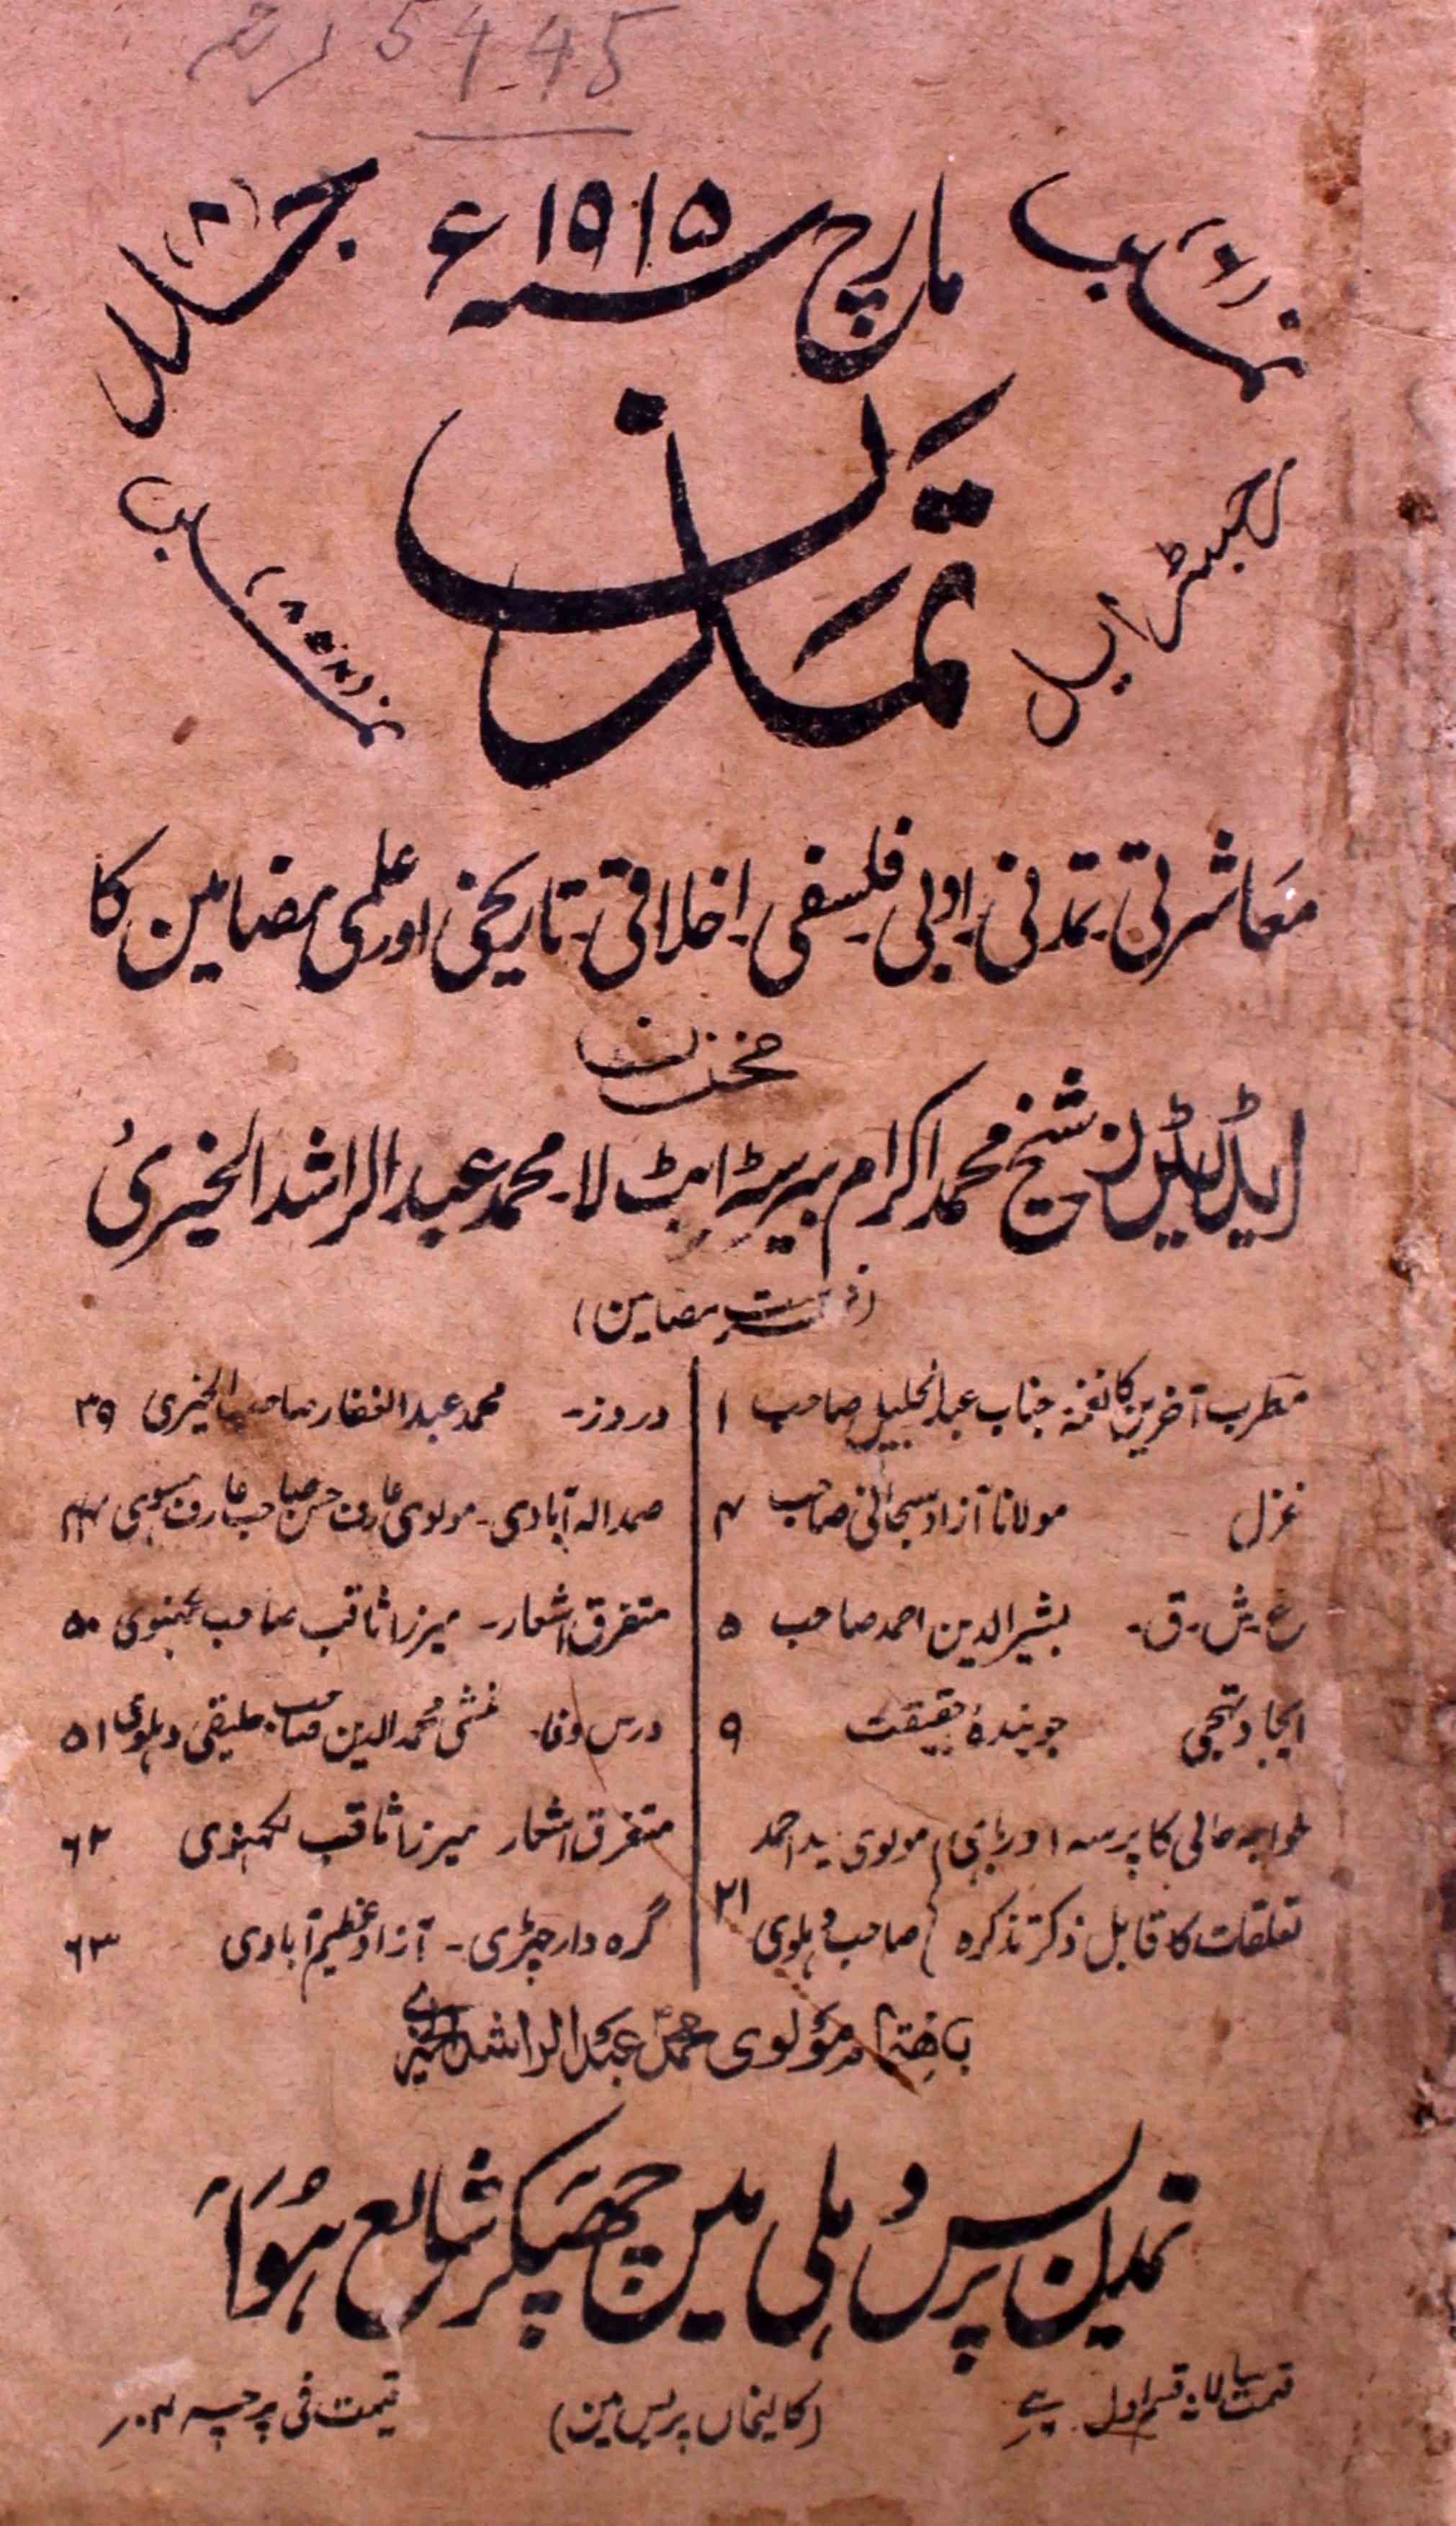 5445
نمبر (۶) مارچ سنہ ۱۹۱۵ء جلد (۸)
تمدن
رجسٹرڈ ایل
نمبر
معاشرتی۔ تمدنی۔ ادبی۔ فلسفی۔ اخلاقی۔ تاریخی اور علمی مضامین کا
مخزن
ایڈیٹرز شیخ محمد اکرام بیرسٹر ایٹ لا۔ محمد عبد الراشد الخیری
(فہرست مضامین)
مطرب آفرین کا نغمہ جناب عبد الجلیل صاحب ۱
غزل مولانا آزاد سبحانی صاحب ۴
ع۔ش۔ق۔ بشیر الدین احمد صاحب ۵
ایجاد تہجی جویندۂ حقیقت ۹
خواجہ حالی کا پرسہ اور باہمی مولوی سید احمد
تعلقات کا قابل ذکر تذکرہ صاحب دہلوی ۲۱
دروز۔ محمد عبد الغفار صاحب الخیری ۳۹
صمد الہ آبادی۔ مولوی عارف حسن صاحب عارف ۴۴
متفرق اشعار۔ میرزا ثاقب صاحب لکھنوی ۵۰
درس وفا۔ منشی محمد الدین صاحب خلیقی دہلوی ۵۱
متفرق اشعار میرزا ثاقب لکھنوی ۶۲
گرہ دار چھڑی۔ آزاد عظیم آبادی ۶۳
باہتمام مولوی محمد عبد الراشد الخیری
تمدن پریس دہلی میں چھپکر شائع ہوا
قیمت سالانہ قسم اول
(کالیخاں پریس مین)
قیمت فی پرچہ ۴؍